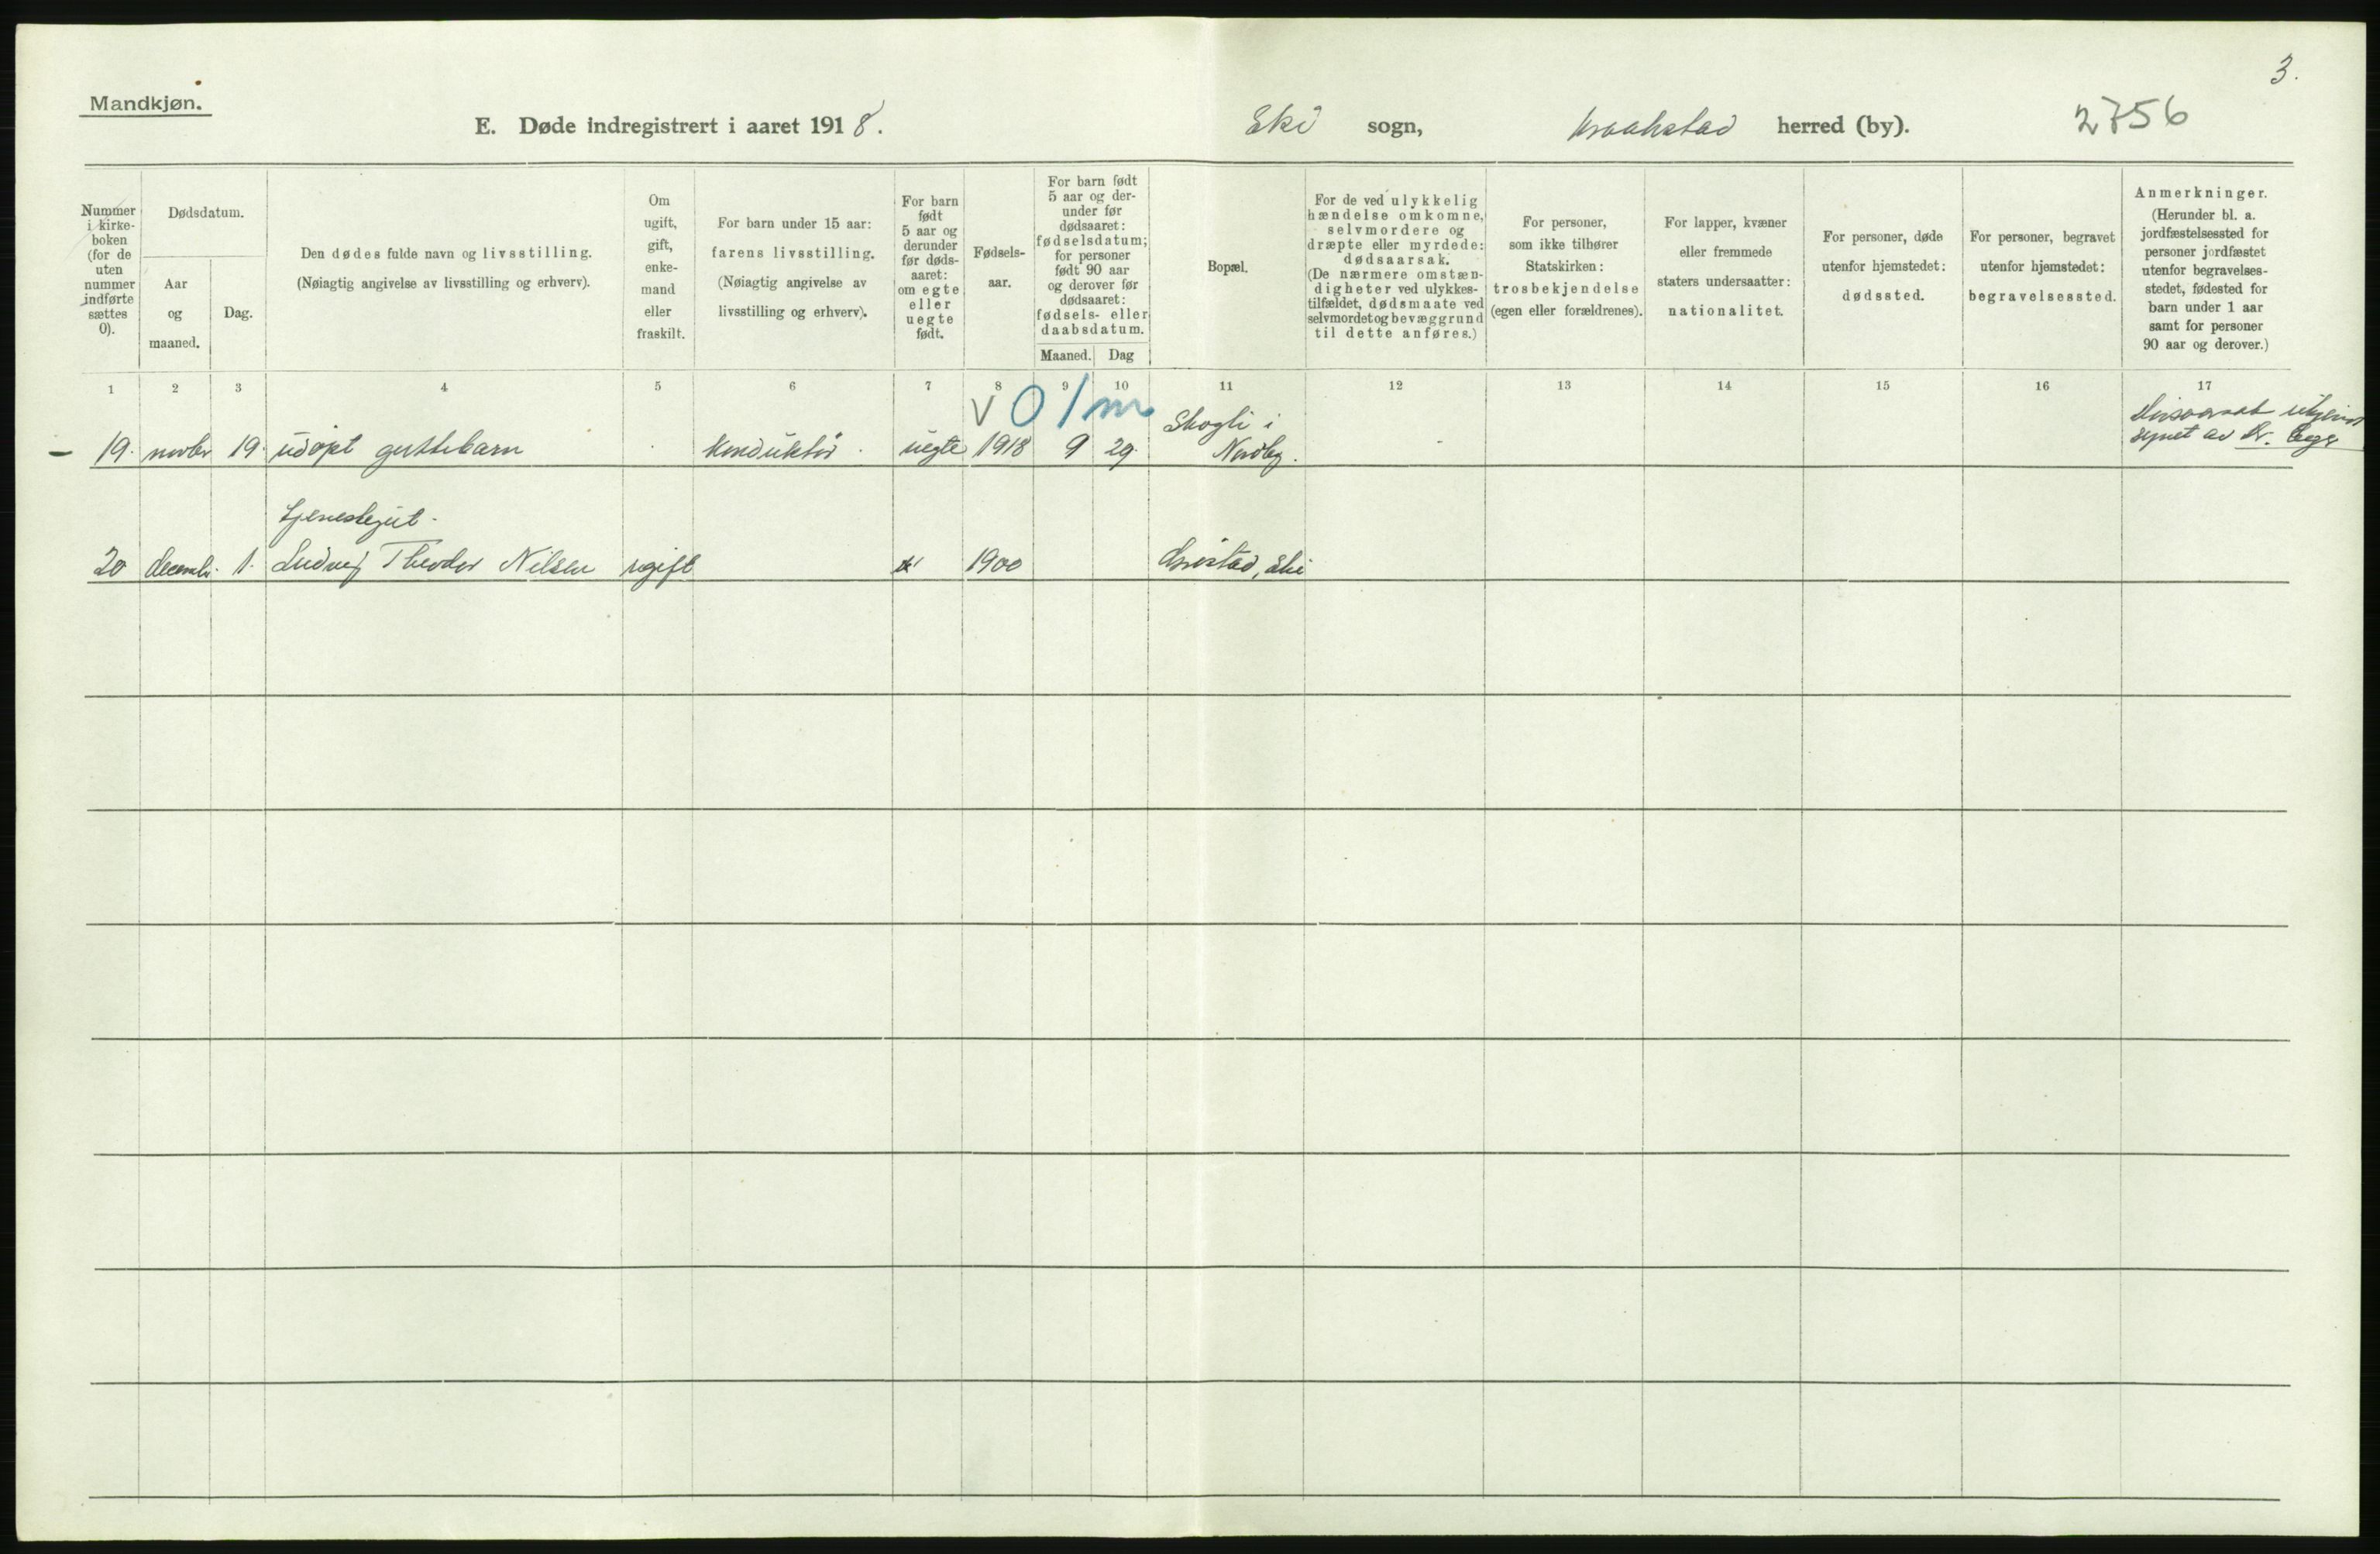 3.
Mandkjøn.
E. Døde indregistrert i aaret 1918.
Ski sogn,
Kraakstad herred (by).
2756
Nummer
i kirke-
boken
(for de
uten
nummer
indførte
sættes
0).
Dødsdatum.
Aar
og
maaned.
Dag.
Den dødes fulde navn og livsstilling.
(Nøiagtig angivelse av livsstilling og erhverv).
Om
ugift,
gift,
enke-
mand
eller
fraskilt.
For barn under 15 aar:
farens livsstilling.
(Nøiagtig angivelse av
livsstilling og erhverv).
For barn
født
5 aar og
derunder
før døds-
aaret:
om egte
eller
uegte
født.
Fødsels-
aar.
For barn født
5 aar og der-
under før
dødsaaret:
fødselsdatum;
for personer
født 90 aar
og derover før
dødsaaret:
fødsels- eller
daabsdatum.
Maaned. Dag
Bopæl.
For de ved ulykkelig
hændelse omkomne,
selvmordere og
dræpte eller myrdede:
dødsaarsak.
(De nærmere omstæn-
digheter ved ulykkes-
tilfældet, dødsmaate ved
selvmordet og bevæggrund
til dette anføres.)
For personer,
som ikke tilhører
Statskirken:
trosbekjendelse
(egen eller forældrenes).
For lapper, kvæner
eller fremmede
staters undersaatter:
nationalitet.
For personer, døde
utenfor hjemstedet:
dødssted.
For personer, begravet
utenfor hjemstedet:
begravelsessted.
Anmerkninger.
(Herunder bl. a.
jordfæstelsessted for
personer jordfæstet
utenfor begravelses-
stedet, fødested for
barn under 1 aar
samt for personer
90 aar og derover.)
1 2 3 4 5 6 7 8 9 10 11 12 13 14 15 16 17
V 0 1 m
19. novbr 19. udøpt guttebarn konduktør uegte 1918 9 29. Skogli i
Nordby.
synet av Dr.
tjenestegut.
20 decembr. 1. Ludvig Theodor Nilsen ugift 1900 Ski